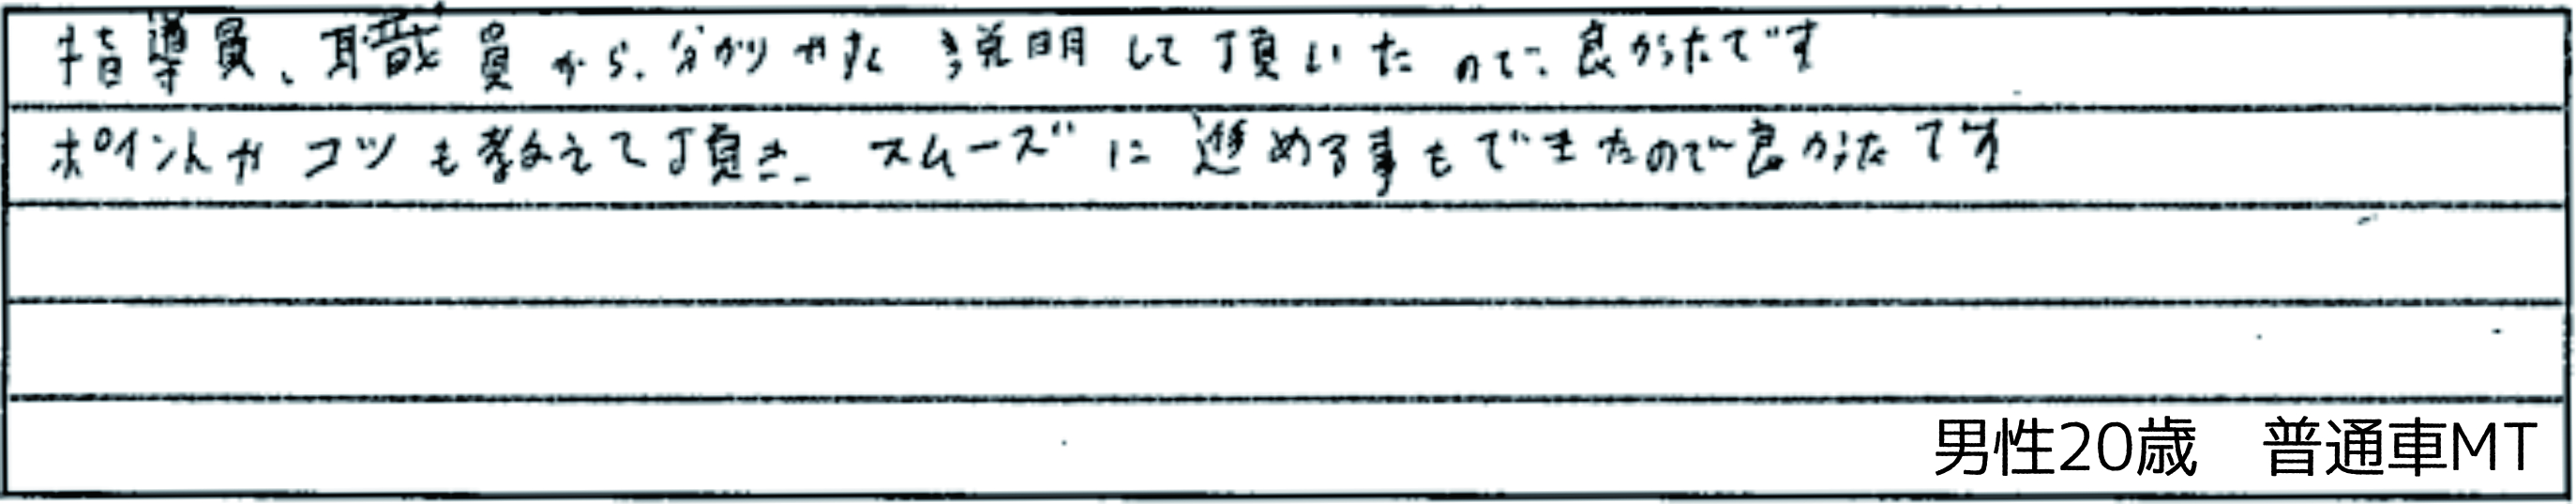 指導員、職員から、分かりやすく説明して頂いたので、良かったです
ポイントやコツも教えて頂き、スムーズに進める事もできたので良かったです
男性20歳　普通車MT